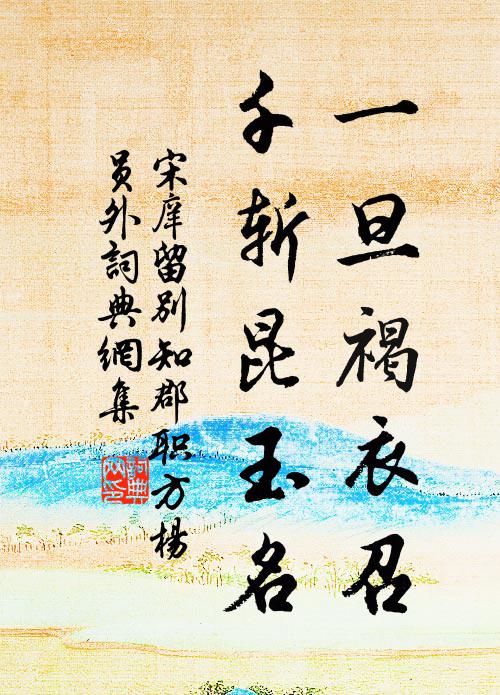 一旦褐衣召
千斬昆玉名
宋庠留別知郡职方楊
員外詞典網集